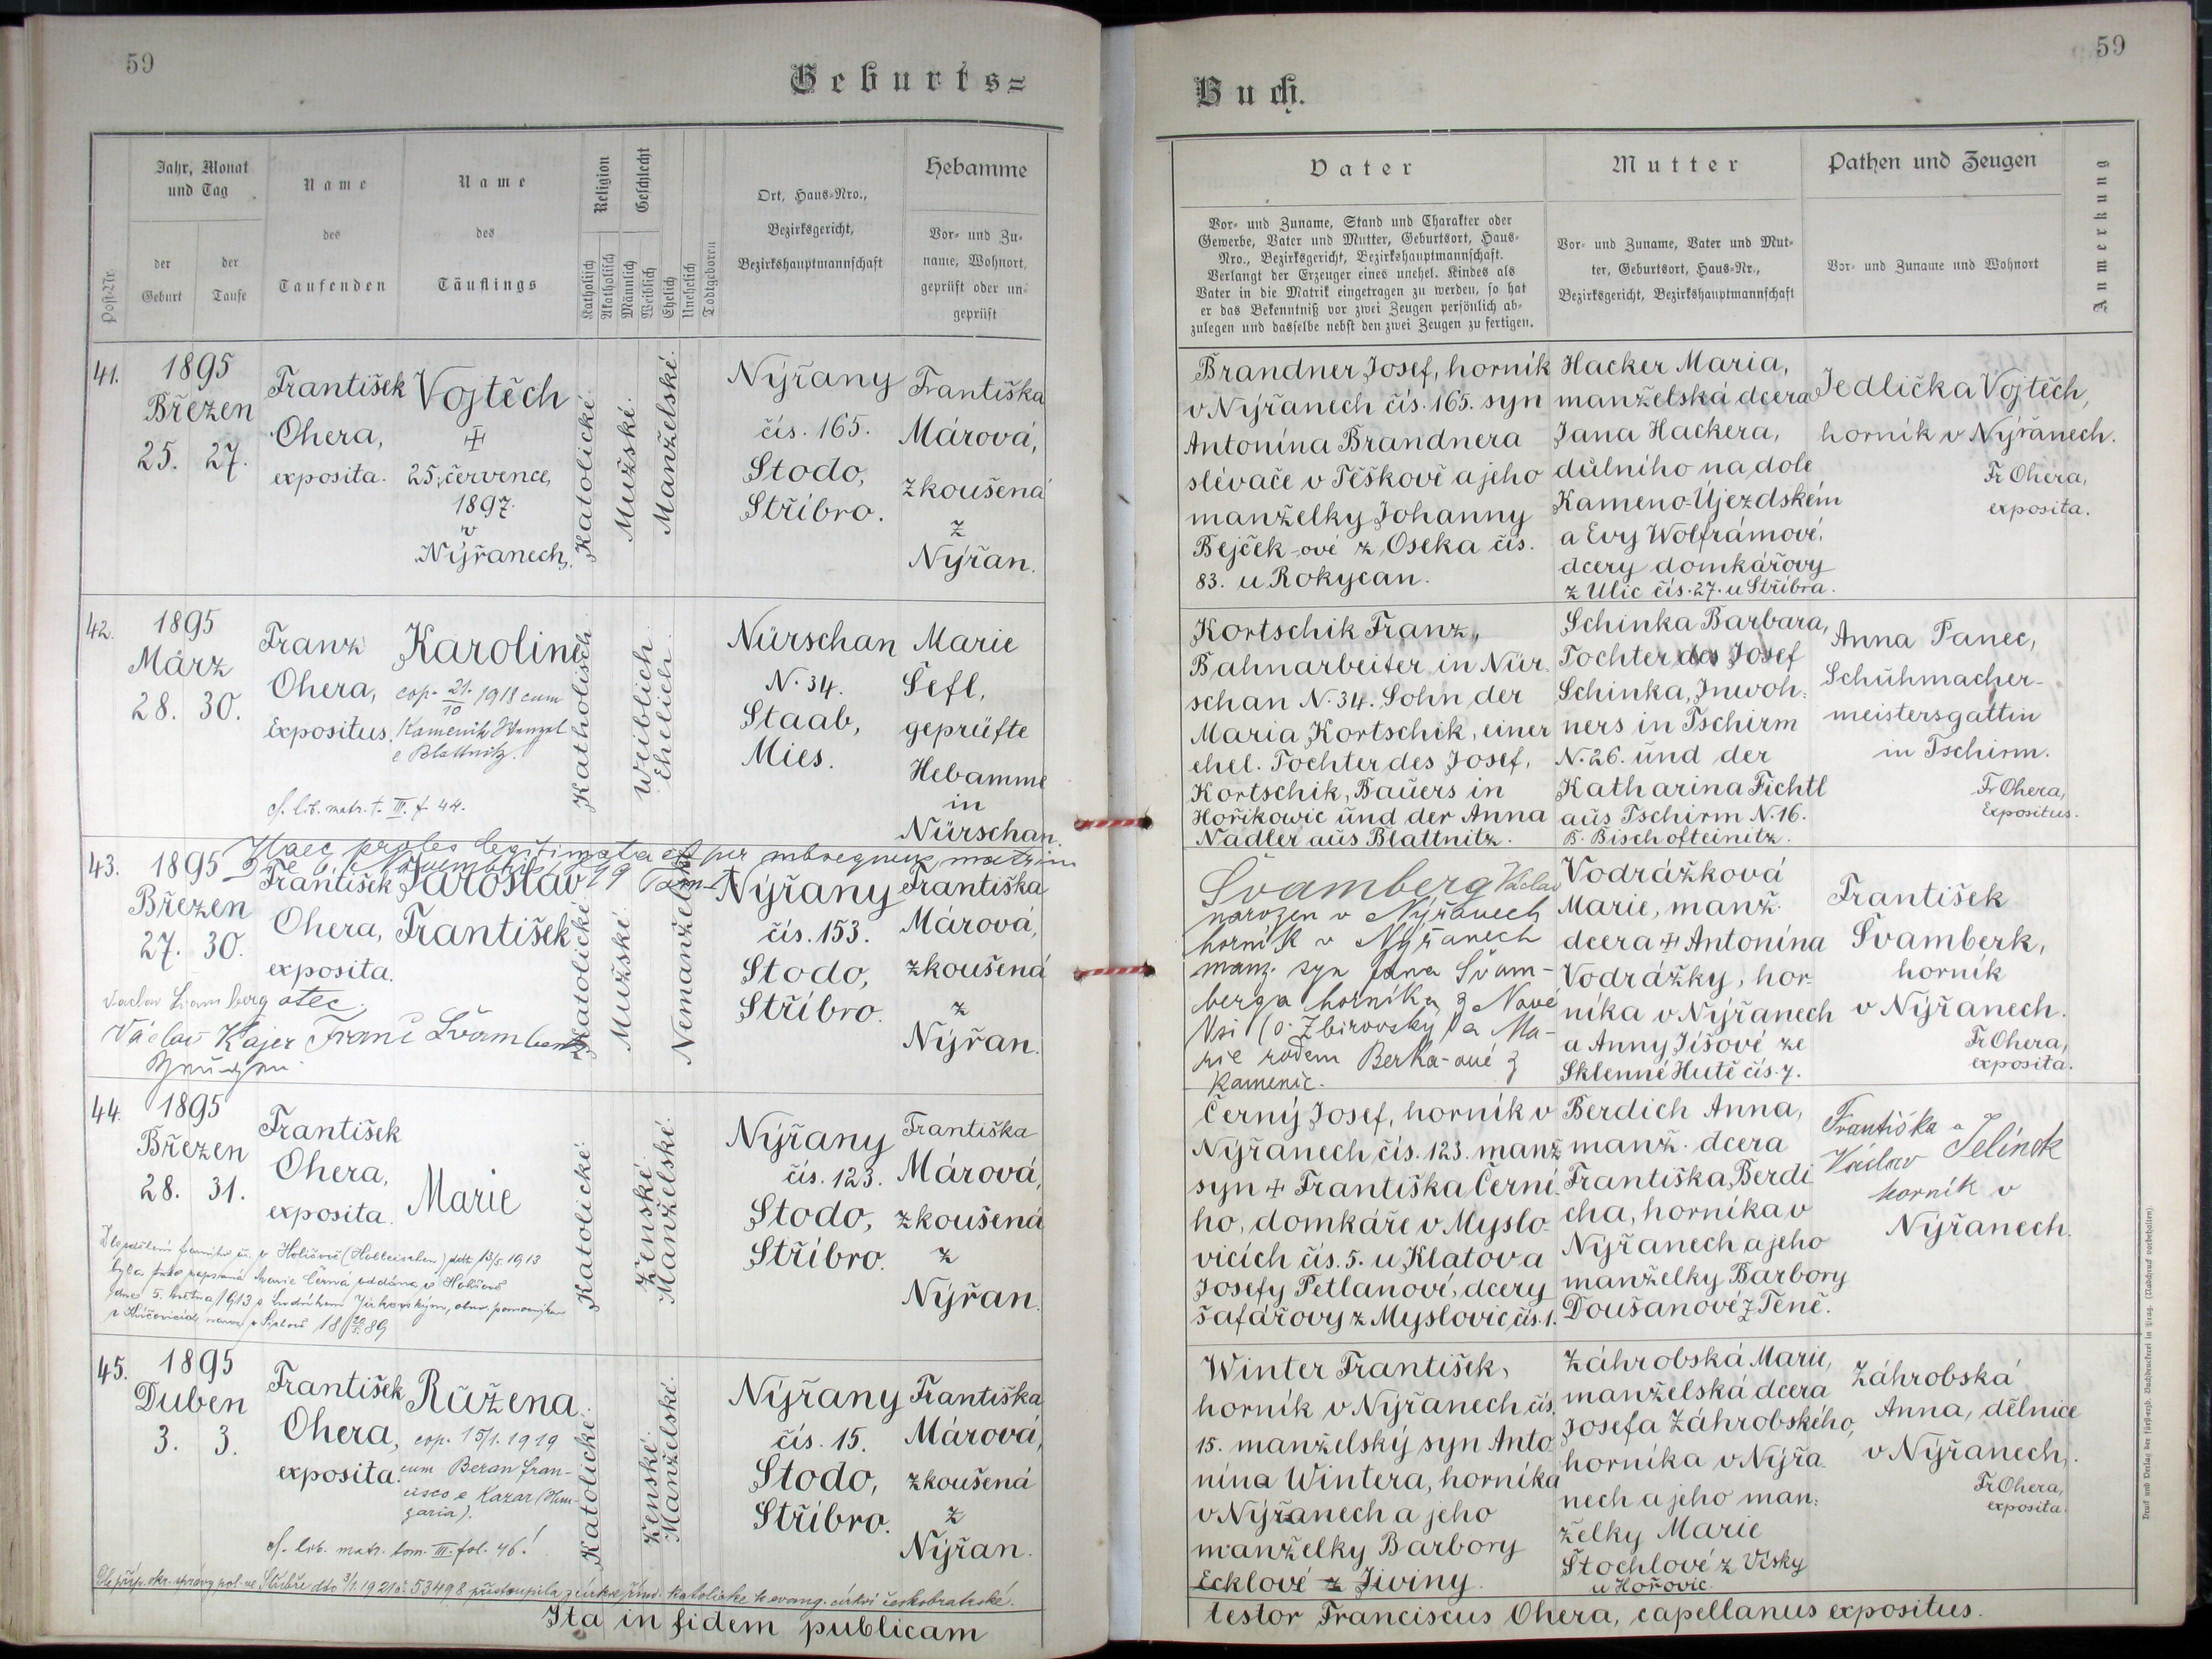 59
Geburts=
Jahr, Monat
und Tag
Name
des
Taufenden
Name
des
Täuflings
Religion
Geschlecht
Ort, Haus=Nro.,
Bezirksgericht,
Bezirkshauptmannschaft
Hebamme
Post=Nr.
der
Geburt
der
Taufe
Katholisch
Akatholisch
Männlich
Weiblich
Ehelich
Unehelich
Todtgeboren
Vor= und Zu=
name, Wohnort,
geprüft oder un=
geprüft
41.
1895
Březen
25. 27.
František
Ohera,
exposita.
Vojtěch
✝
25. července,
1897.
v
Nýřanech.
Katolické.
Mužské.
Manželské.
Nýřany
čís. 165.
Stodo,
Stříbro.
Františka
Márová,
zkoušená
z
Nýřan.
42.
1895
März
28. 30.
Franz
Ohera,
Expositus.
Karolina
cop. 21./10 1918 cum
Kamenik Wenzel
e Blattnitz.
cf. lib. matr. t. III. f. 44.
Katholisch.
Weiblich.
Ehelich.
Nürschan
N. 34.
Staab,
Mies.
Marie
Sefl,
geprüfte
Hebamme
in
Nürschan.
Haec proles legitimata est per subsequens matrim
43.
1895
Březen
27. 30.
František
Ohera,
exposita.
Jaroslav
František
Václav Švamberg otec.
Václav Kajer Franc Švamberk
Katolické.
Mužské.
Nemanželské.
Nýřany
čís. 153.
Stodo,
Stříbro.
Františka
Márová,
zkoušená
z
Nýřan.
44.
1895
Březen
28. 31.
František
Ohera,
exposita.
Marie
v Holišově (Holleischen) ddt 13/5 1913
byla tuto zapsaná Marie Černá oddána v Holišově
dne 5. května 1913 s Jirkovským,
18 20/5. 89
Katolické.
Ženské.
Manželské.
Nýřany
čís. 123.
Stodo,
Stříbro.
Františka
Márová,
zkoušená
z
Nýřan.
45.
1895
Duben
3. 3.
František
Ohera,
exposita.
Růžena.
cop. 15/1. 1919
cum Beran Fran-
cisco e Kazar (Hun-
garia).
cf. lib. matr. tom. III. fol. 46!
Katolické.
Ženské.
Manželské.
Nýřany
čís. 15.
Stodo,
Stříbro.
Františka
Márová,
zkoušená
z
Nýřan.
Dle příp. okr. správy pol. ve Stříbře dto 3/1. 1921 č. 53498 přestoupila z církve řím. katolické k evang. církvi českobratrské.
Ita in fidem publicam
59
Buch.
Vater
Mutter
Pathen und Zeugen
Anmerkung
Vor= und Zuname, Stand und Charakter oder
Gewerbe, Vater und Mutter, Geburtsort, Haus=
Nro., Bezirksgericht, Bezirkshauptmannschaft.
Verlangt der Erzeuger eines unehel. Kindes als
Vater in die Matrik eingetragen zu werden, so hat
er das Bekenntniß vor zwei Zeugen persönlich ab=
zulegen und dasselbe nebst den zwei Zeugen zu fertigen.
Vor= und Zuname, Vater und Mut=
ter, Geburtsort, Haus=Nr.,
Bezirksgericht, Bezirkshauptmannschaft
Vor= und Zuname und Wohnort
Brandner Josef, horník
v Nýřanech čís. 165. syn
Antonína Brandnera
slévače v Těškově a jeho
manželky Johanny
Bejček-ové z Oseka čís.
83. u Rokycan.
Hacker Maria,
manželská dcera
Jana Hackera,
důlního na dole
Kameno-Újezdském
a Evy Wolframové,
dcery domkářovy
z Ulic čís. 27. u Stříbra.
Jedlička Vojtěch,
horník v Nýřanech.
Fr Ohera,
exposita.
Kortschik Franz,
Bahnarbeiter in Nür-
schan N. 34. Sohn der
Maria Kortschik, einer
ehel. Tochter des Josef
Kortschik, Bauers in
Hořikowic und der Anna
Nadler aus Blattnitz.
Schinka Barbara,
Tochter des Josef
Schinka, Inwoh-
ners in Tschirm
N. 26. und der
Katharina Fichtl
aus Tschirm N. 16.
B. Bischofteinitz.
Anna Panec,
Schuhmacher-
meistersgattin
in Tschirm.
Fr Ohera,
Expositus.
Švamberg Václav
narozen v Nýřanech
horník v Nýřanech
manž. syn Jana Švam-
berga horníka z Nové
Vsi (o. Zbirovský) a Ma-
rie rodem Berka-ové z
Kamenic.
Vodrážková
Marie, manž.
dcera ✝ Antonína
Vodrážky, hor-
níka v Nýřanech
a Anny Jíšové ze
Sklenné Hutě čís. 7.
František
Švamberk,
horník
v Nýřanech.
Fr Ohera,
exposita.
Černý Josef, horník v
Nýřanech čís. 123. manž.
syn ✝ Františka Černé-
ho, domkáře v Myslo-
vicích čís. 5. u Klatov a
Josefy Petlanové, dcery
šafářovy z Myslovic čís. 1.
Berdich Anna,
manž. dcera
Františka Berdi
cha, horníka v
Nýřanech a jeho
manželky Barbory
Doušanové z Těně.
Františka a
Václav Jelínek
horník v
Nýřanech.
Winter František,
horník v Nýřanech čís.
15. manželský syn Anto
nína Wintera, horníka
v Nýřanech a jeho
manželky Barbory
Ecklové z Jiviny.
Záhrobská Marie,
manželská dcera
Josefa Záhrobského,
horníka v Nýřa-
nech a jeho man-
želky Marie
Štochlové z Vísky
u Hořovic.
Záhrobská
Anna, dělnice
v Nýřanech.
Fr Ohera,
exposita.
testor Franciscus Ohera, capellanus expositus.
Druck und Verlag der fürst=erzb. Buchdruckerei in Prag. (Nachdruck vorbehalten)